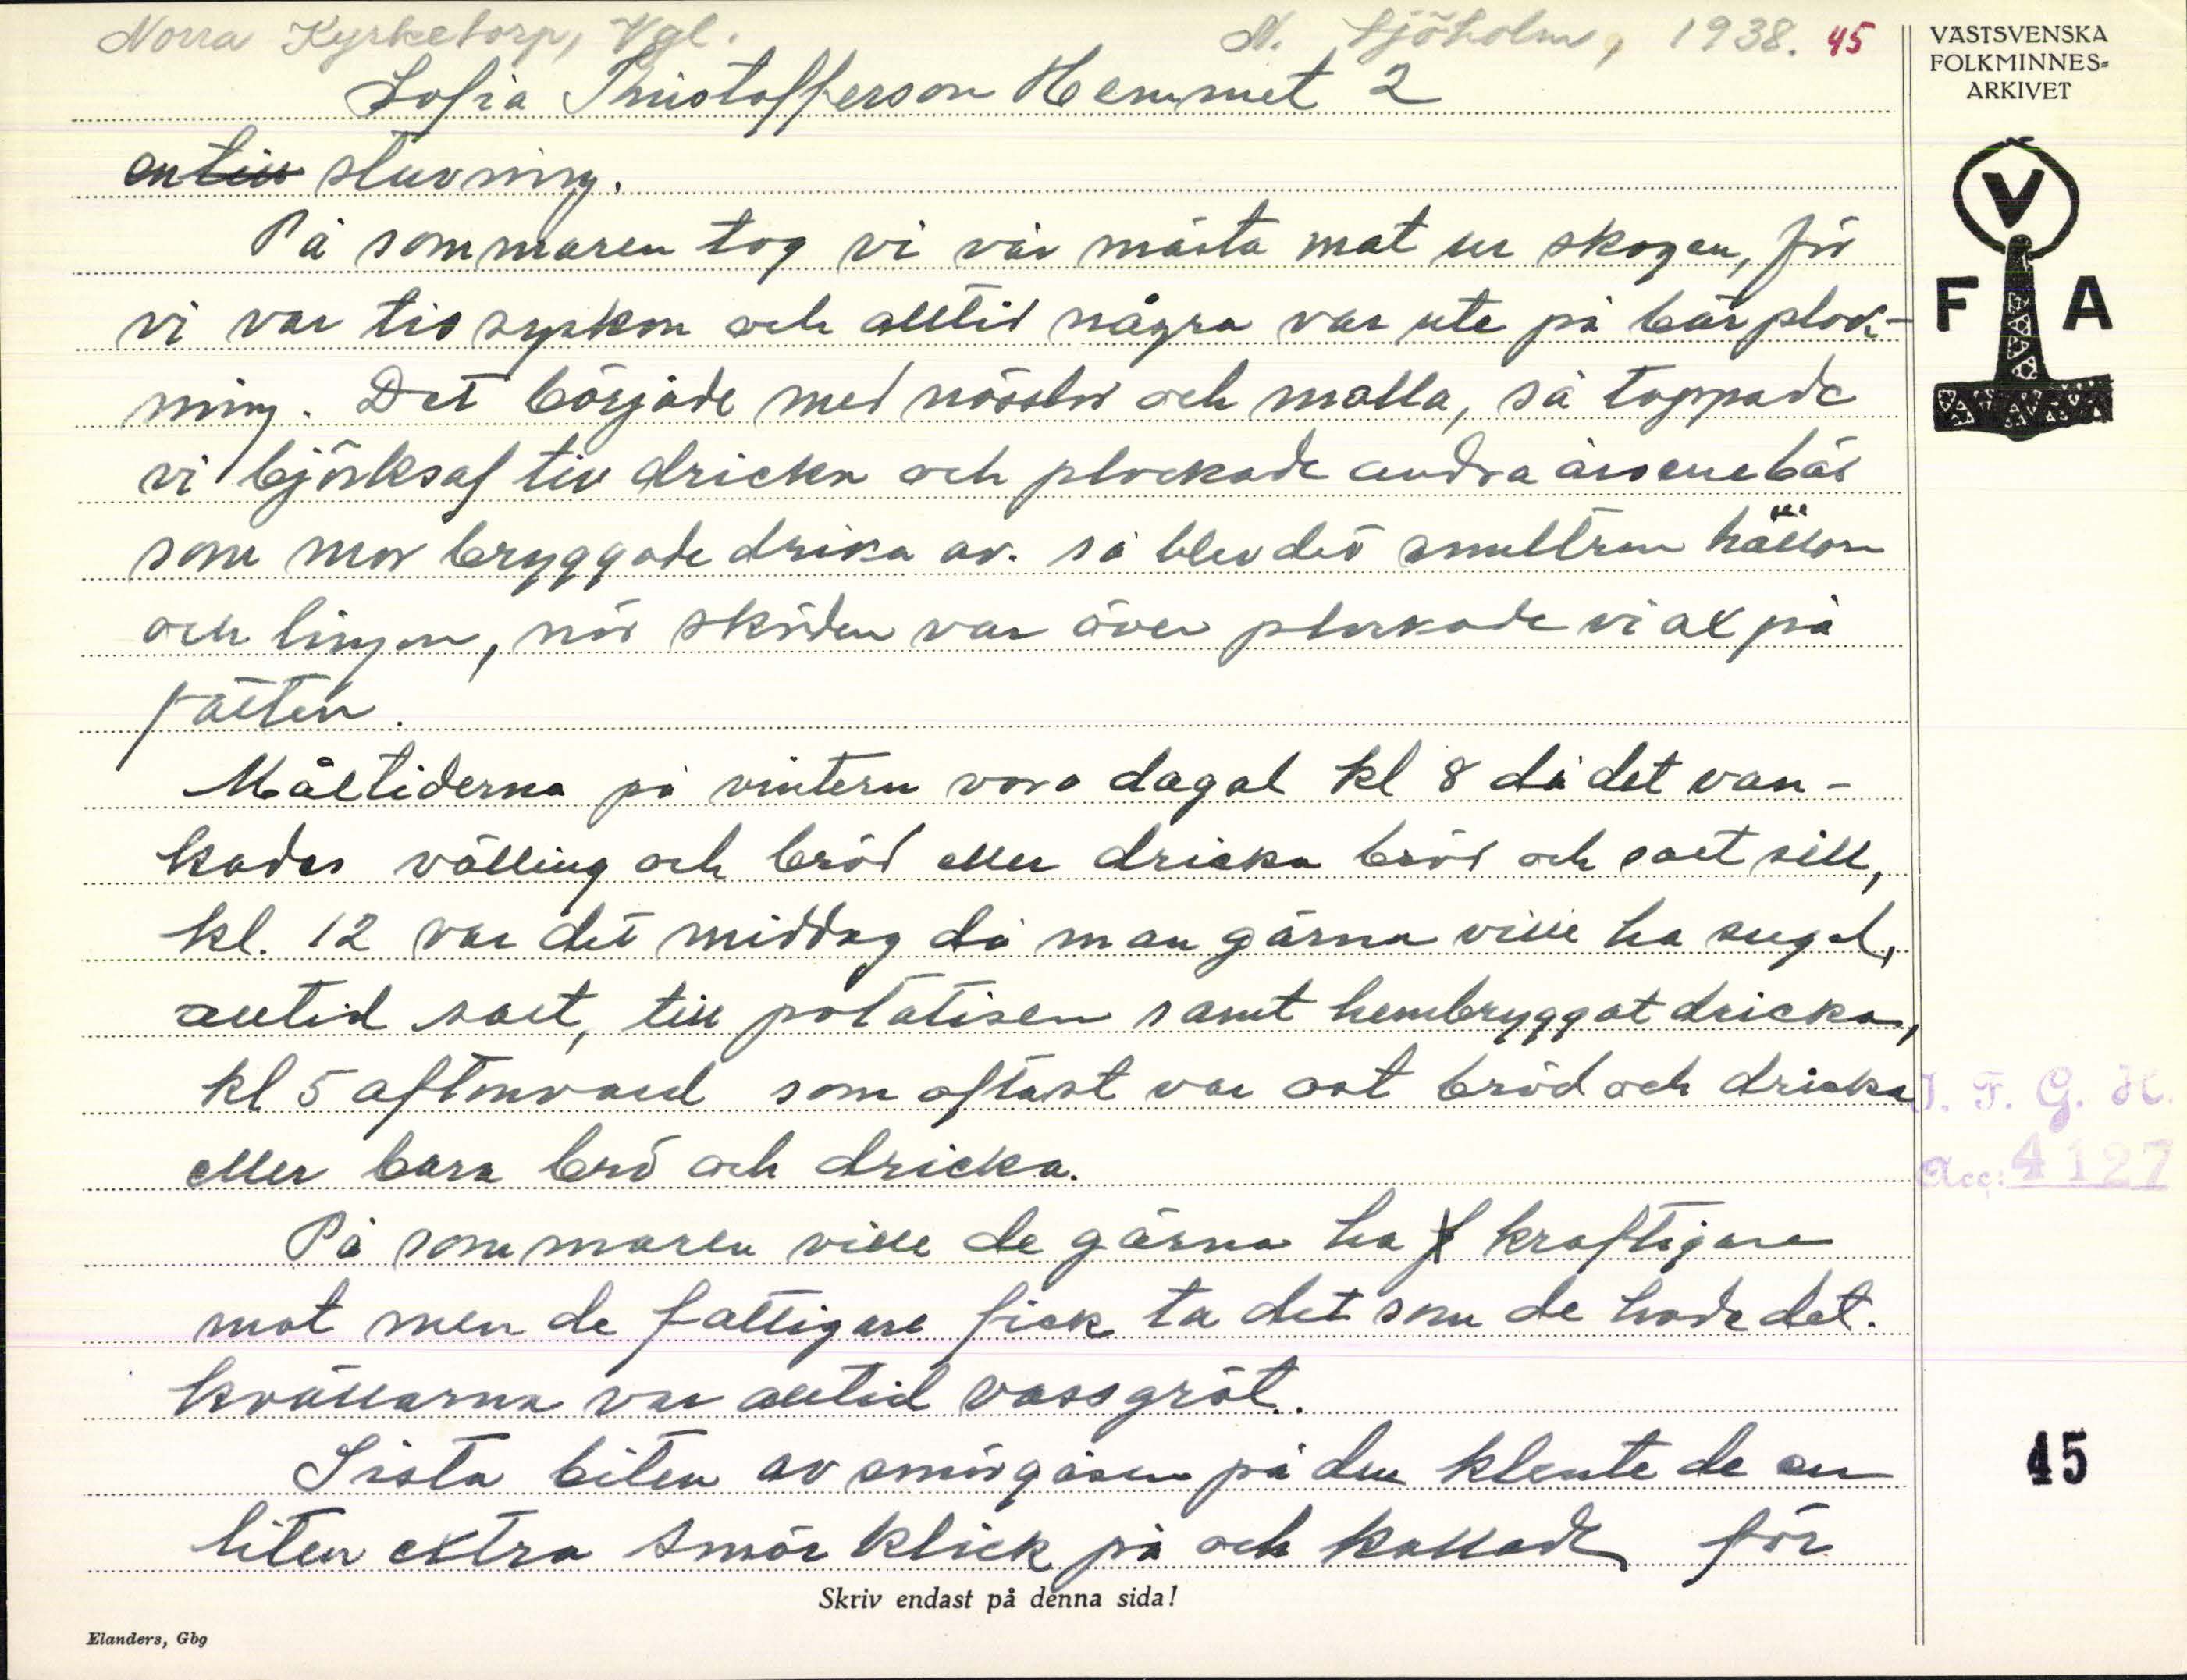 Norra Kyrketorp, Vgl. N. Sjöholm, 1938. 45
Sofia Kristofferson Hemmet 2
en till stuvning.
På sommaren tog vi vår mästa mat ur skogen, för
vi var tio syskon och alltid några var ute på bärplock-
ning. Det började med nässlor och molla, så tappade
vi björksaf till dricka och plockade andra årsenebär
som mor bryggade drika av. så blev det smultron hallon
och lingon, när skörden var över plockade vi ax på
fälten.
Måltiderna på vintern voro dagal kl 8 då det van-
kades välling och bröd eller dricka bröd och salt sill,
kl. 12 var det middag då man gärna ville ha sugel,
alltid salt, till potatisen samt hembryggat dricka,
kl 5 aftonvard som oftast var ost bröd och dricka
eller bara brö och dricka.
På sommaren ville de gärna ha kraftigare
mat men de fattigare fick ta det som de hade det.
kvällarna var alltid vassgröt.
Sista biten av smörgåsen på den klente de en
liten extra smör klick på och kallade för
Skriv endast på denna sida!
Elanders, Gbg
VÄSTSVENSKA
FOLKMINNES-
ARKIVET
V
F A
I. F. G. H.
Acc: 4127
45